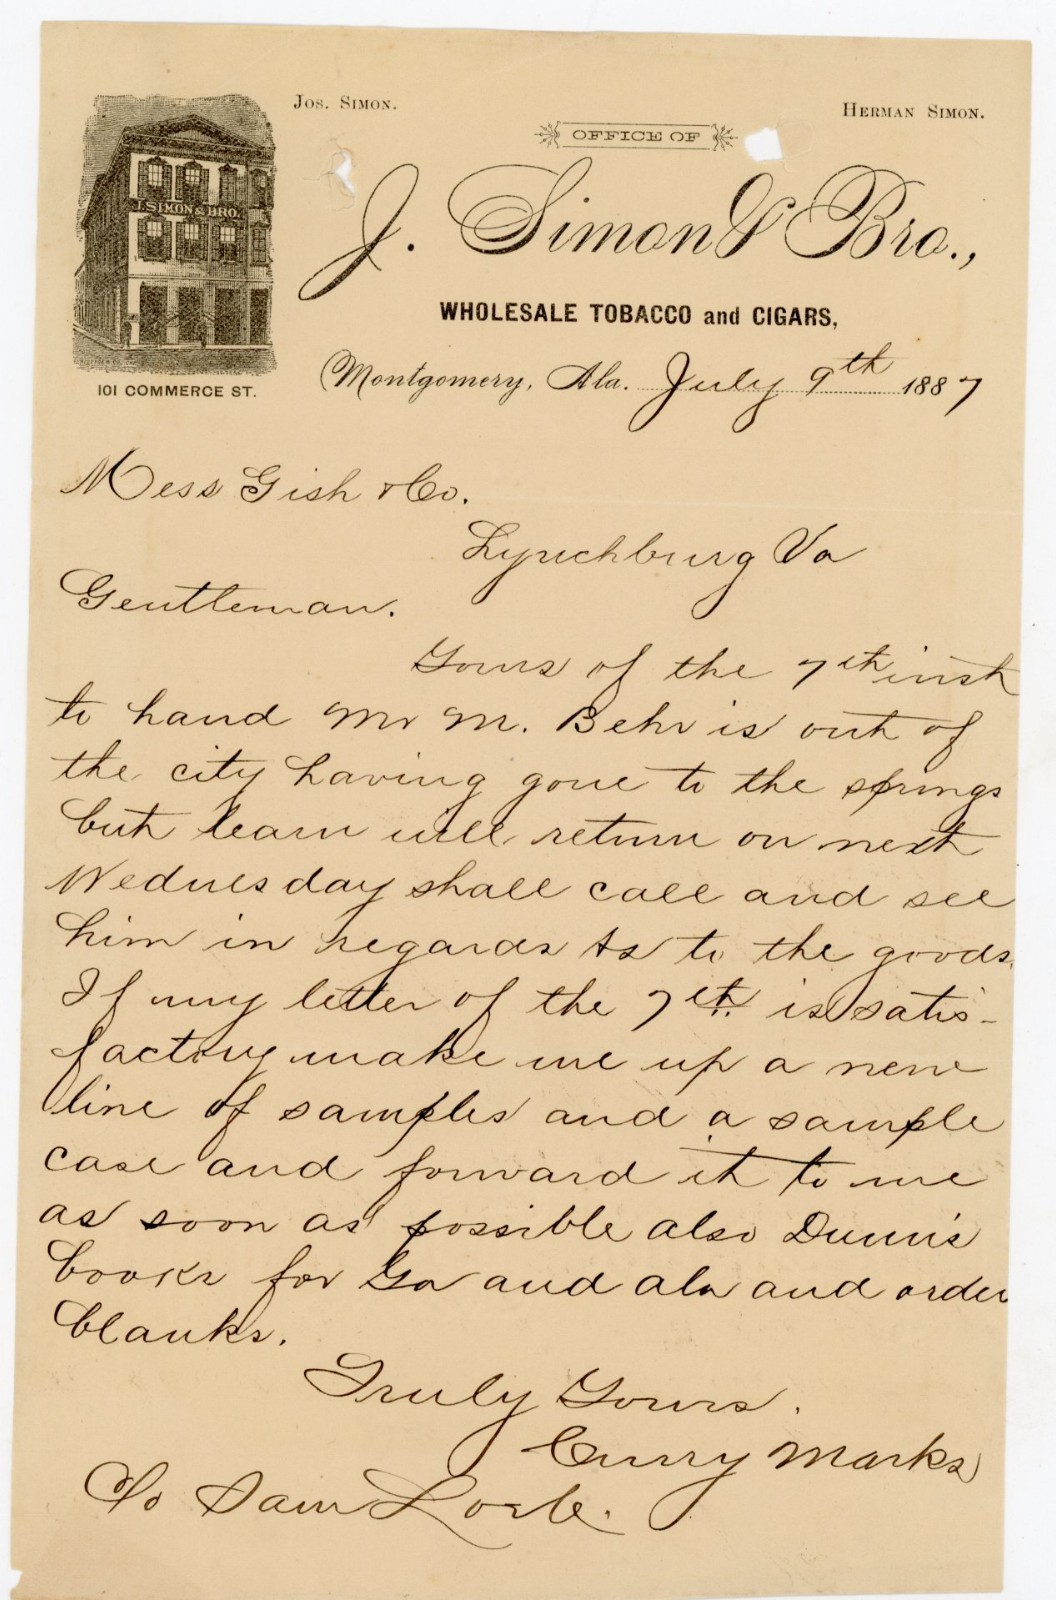 Jos. Simon.
Herman Simon.
OFFICE OF
J. Simon & Bro.,
J. SIMON & BRO.
WHOLESALE TOBACCO and CIGARS,
101 COMMERCE ST.
Montgomery, Ala. July 9th 1887
Mess Gish & Co.
Lynchburg Va
Gentleman.
Yours of the 7th inst
to hand Mr M. Behr is out of
the city having gone to the springs
but learn will return on next
Wednesday shall call and see
him in regards as to the goods.
If my letter of the 7th. is satis-
factory make me up a new
line of samples and a sample
case and forward it to me
as soon as possible also Dunn's
books for Ga and ala and order
blanks.
Truly Yours.
Curry Marks
C/o Sam Loeb.